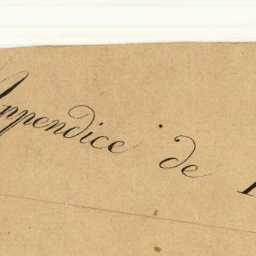 Appendice de